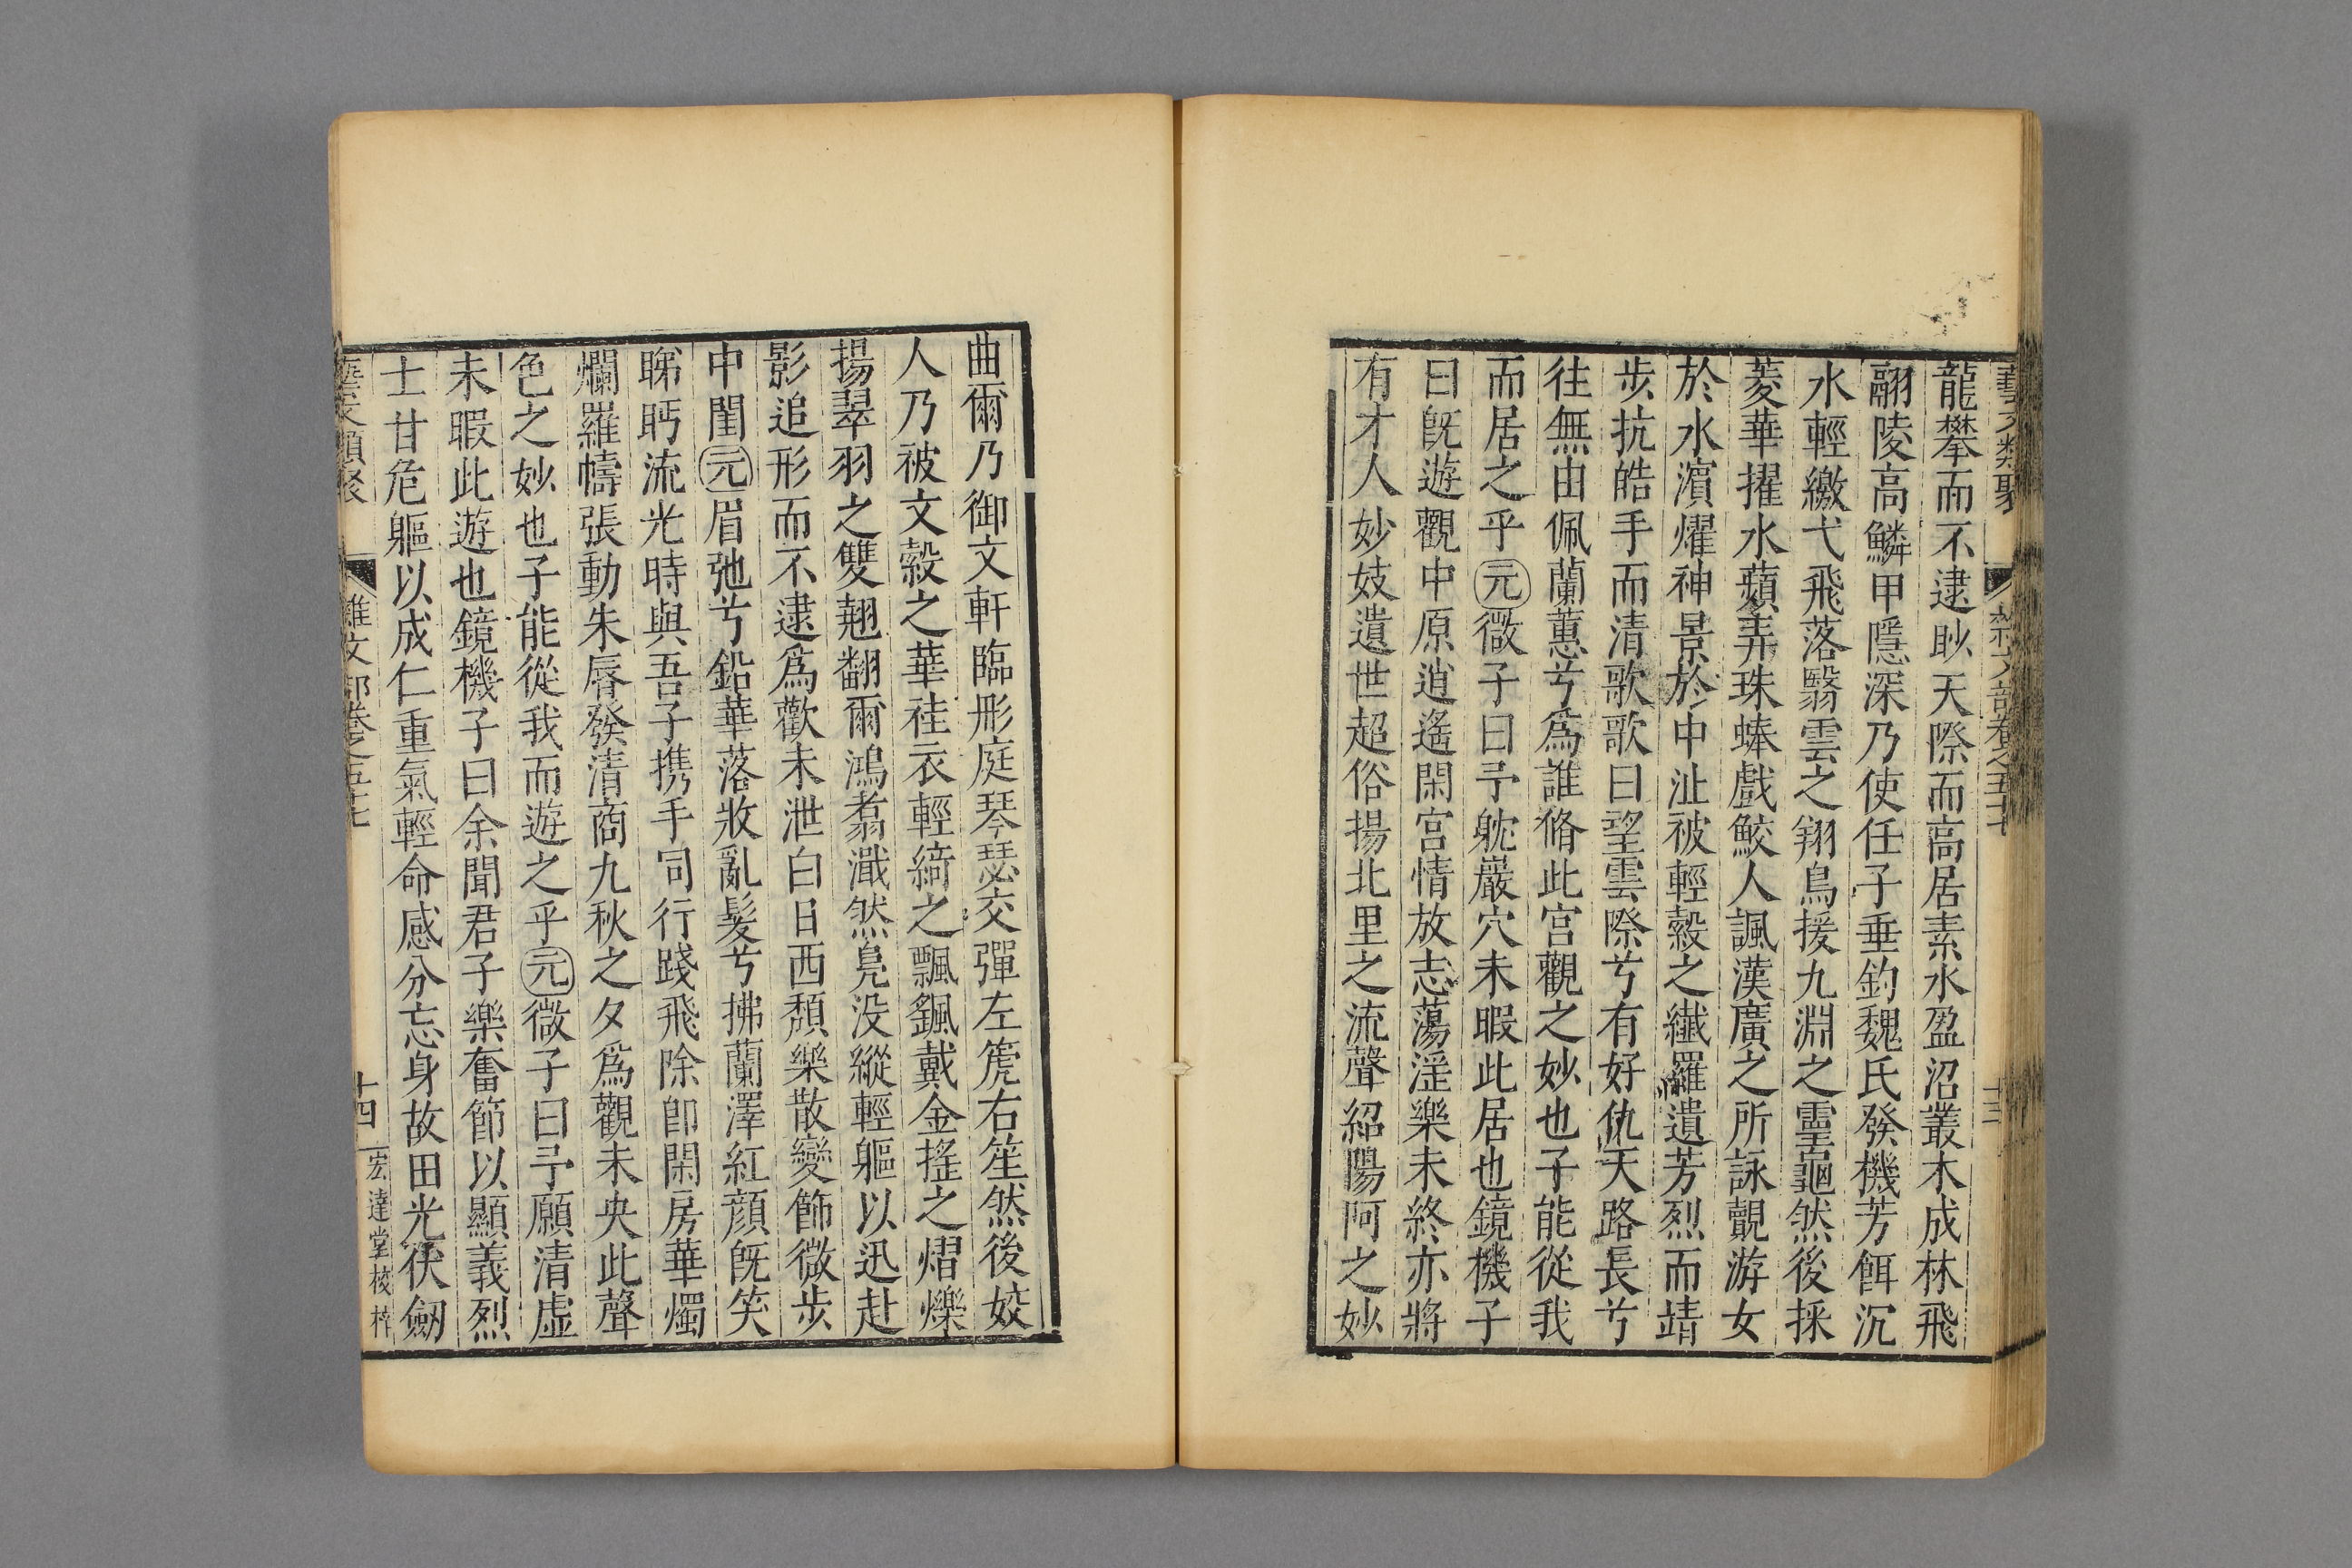 藝文類聚 雜文部卷之五十七 十三
龍攀而不逮眇天際而高居素水盈沼叢木成林飛
翮陵高鱗甲隱深乃使任子垂釣魏氏發機芳餌沉
水輕繳弋飛落翳雲之翔鳥援九淵之靈龜然後採
菱華擢水蘋弄珠蜯戲鮫人諷漢廣之所詠覿游女
於水濵燿神景於中沚被輕縠之纖羅遺芳烈而靖
步抗皓手而清歌歌曰望雲際兮有好仇天路長兮
往無由佩蘭蕙兮爲誰脩此宫觀之妙也子能從我
而居之乎元微子曰予躭巖穴未暇此居也鏡機子
曰旣遊觀中原逍遙閑宫情放志蕩淫樂未終亦將
有才人妙妓遺世超俗揚北里之流聲紹陽阿之妙
曲爾乃御文軒臨彤庭琴瑟交彈左箎右笙然後姣
人乃被文縠之華袿衣輕綺之飄颻戴金搖之熠爍
揚翠羽之雙翹翻爾鴻翥濈然鳧没縱輕軀以迅赴
影追形而不逮爲歡未泄白日西頹樂散變飾微步
中閨元眉弛兮鉛華落收亂髮兮拂蘭澤紅顏旣笑
睇眄流光時與吾子携手同行踐飛除卽閑房華燭
爛羅幬張動朱唇發清商九秋之夕爲觀未央此聲
色之妙也子能從我而遊之乎元微子曰予願清虛
未暇此遊也鏡機子曰余聞君子樂奮節以顯義烈
士甘危軀以成仁重氣輕命感分忘身故田光伏劒
藝文類聚 雜文部卷之五十七 十四 宏達堂校梓